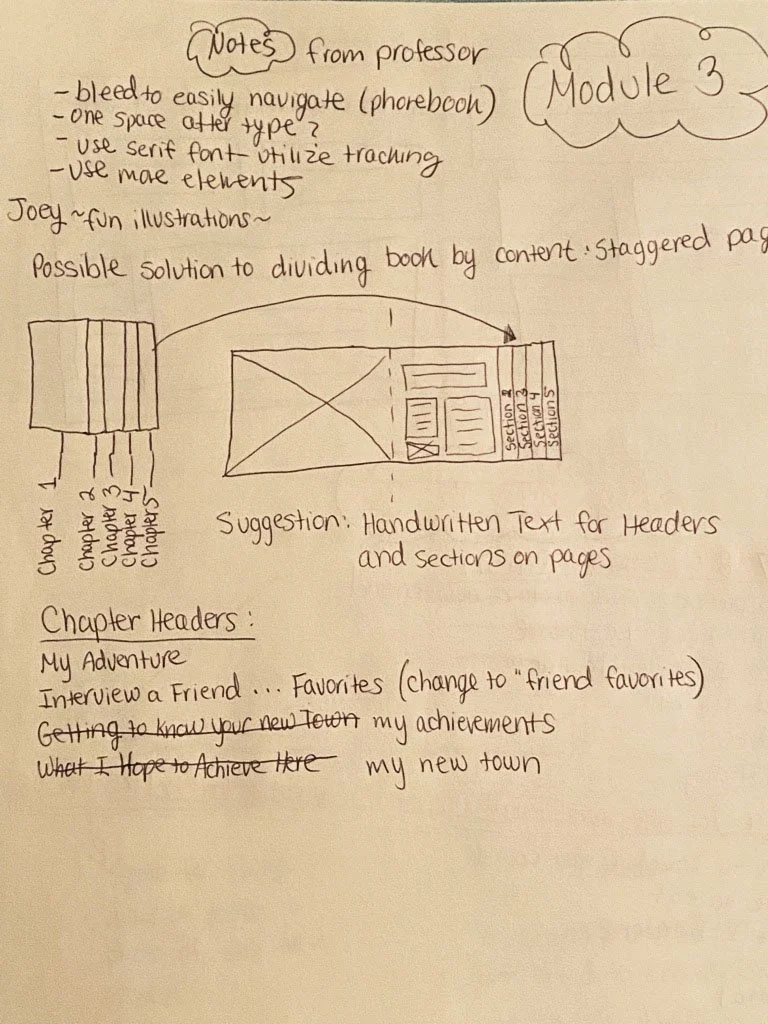 Notes from professor
Module 3
- bleed to easily navigate (phonebook)
- one space after type?
- use serif font - utilize tracking
- use more elements
Joey ~fun illustrations~
Possible solution to dividing book by content: Staggered pag
Section 2
Section 3
Section 4
Section 5
Chapter 1
Chapter 2
Chapter 3
Chapter 4
Chapter 5
Suggestion: Handwritten Text for Headers
and sections on pages
Chapter Headers:
My Adventure
Interview a Friend ... Favorites (change to "friend favorites)
Getting to know your new Town my achievements
What I Hope to Achieve Here my new town